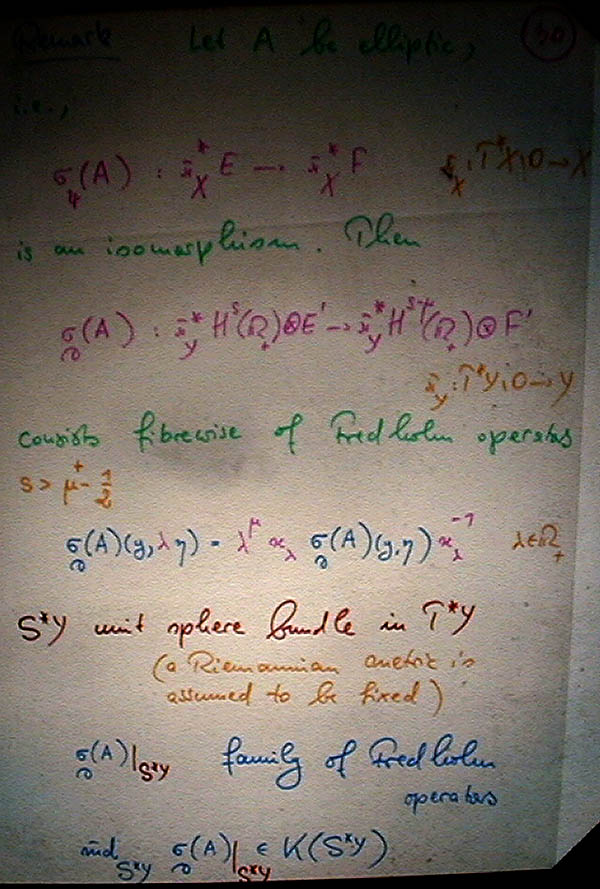 Remark Let A be elliptic, 30
i.e.,
σ_ψ(A) : π*_X E → π*_X F π_X : T*X\0 → X
is an isomorphism. Then
σ_∂(A) : π*_Y H^s(ℝ_+)⊗E' → π*_Y H^{s-μ}(ℝ_+)⊗F'
π_Y : T*Y\0 → Y
consists fibrewise of Fredholm operators
s > μ^+ - 1/2
σ_∂(A)(y,λη) = λ^μ ϰ_λ σ_∂(A)(y,η) ϰ_λ^{-1} λ∈ℝ_+
S*Y unit sphere bundle in T*Y
(a Riemannian metric is
assumed to be fixed)
σ_∂(A)|_{S*Y} family of Fredholm
operators
ind_{S*Y} σ_∂(A)|_{S*Y} ∈ K(S*Y)